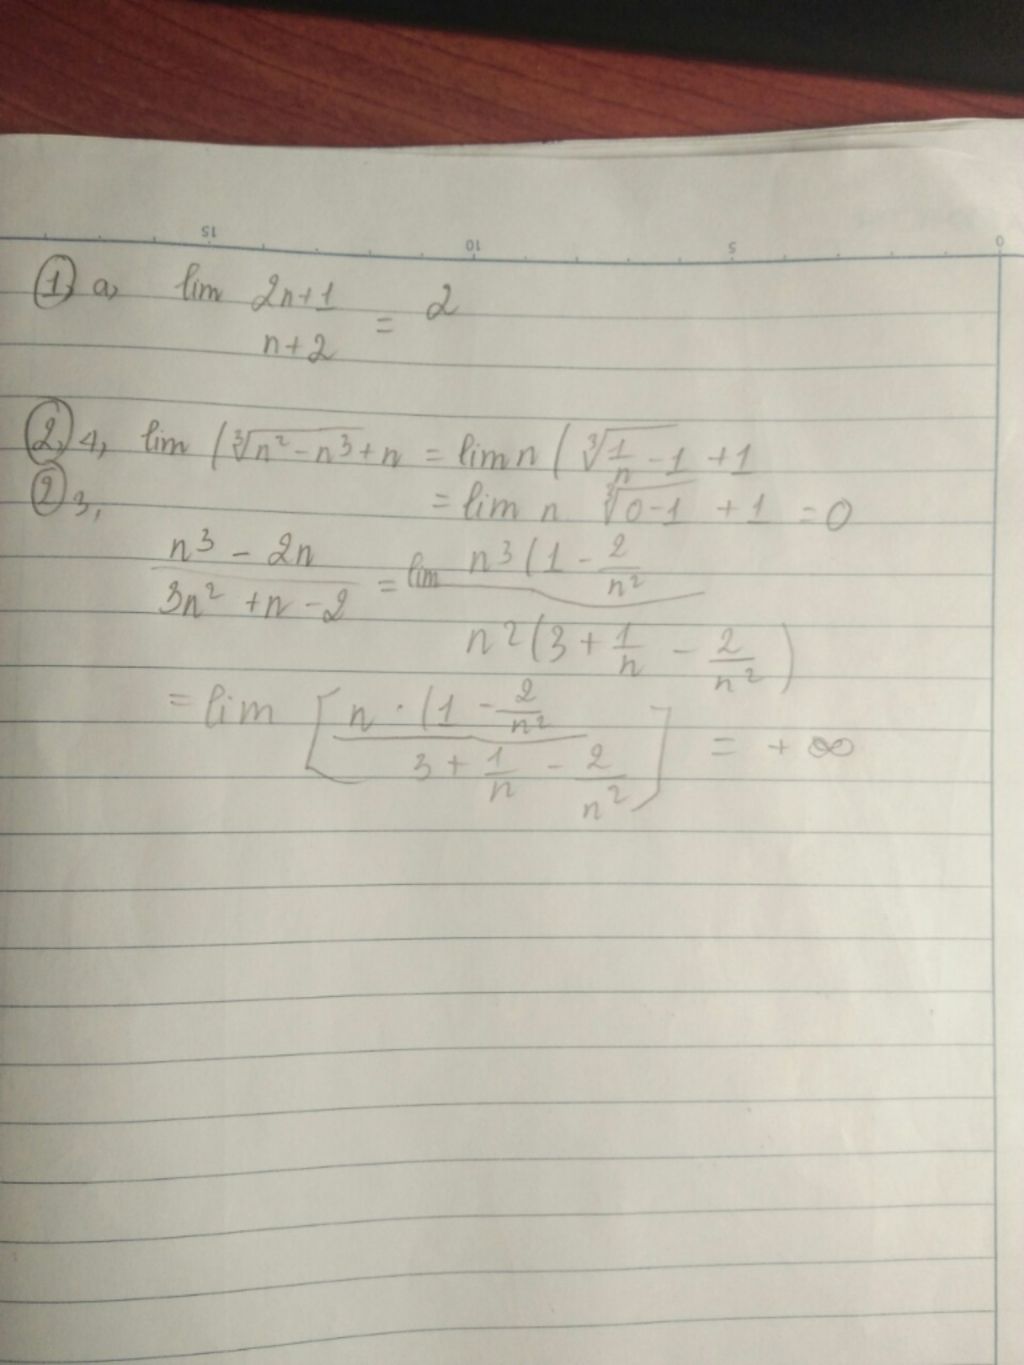 15 10 5 0
① a, lim (2n+1)/(n+2) = 2
② 4, lim (∛(n² - n³) + n = lim n (∛(1/n - 1) + 1
② 3, = lim n ∛(0-1) + 1 = 0
(n³ - 2n)/(3n² + n - 2) = lim (n³(1 - 2/n²)/(n²(3 + 1/n - 2/n²))
= lim [(n · (1 - 2/n²)/(3 + 1/n - 2/n²)] = +∞